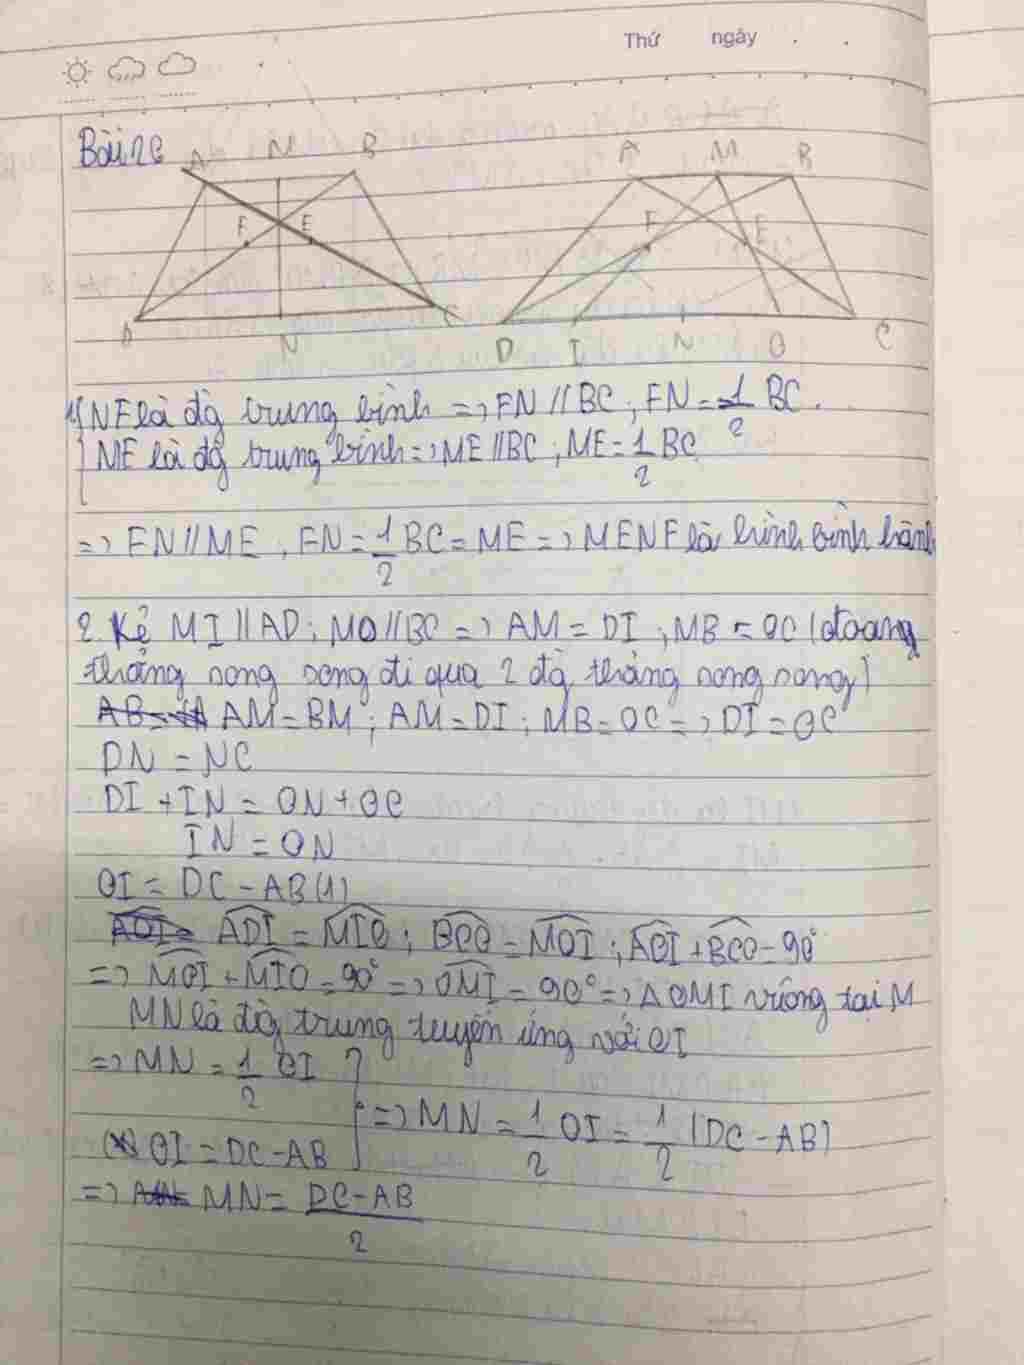 Thứ ngày
Bài 26
A M B A M B
F E F E
D N C D I N O C
1) NF là đg trung bình => FN // BC ; FN = 1/2 BC.
ME là đg trung bình => ME // BC ; ME = 1/2 BC
=> FN // ME , FN = 1/2 BC = ME => MENF là hình bình hành
2. Kẻ MI // AD ; MO // BC => AM = DI ; MB = OC (đoạng
thẳng song song đi qua 2 đg thẳng song song)
AM = BM ; AM = DI ; MB = OC => DI = OC
DN = NC
DI + IN = ON + OC
IN = ON
OI = DC - AB (1)
ADI = MIO ; BCO = MOI ; ADI + BCO = 90°
=> MOI + MIO = 90° => OMI = 90° => Δ OMI vuông tại M
MN là đg trung tuyến ứng với OI
=> MN = 1/2 OI
=> MN = 1/2 OI = 1/2 (DC - AB)
OI = DC - AB
=> MN = DC - AB / 2